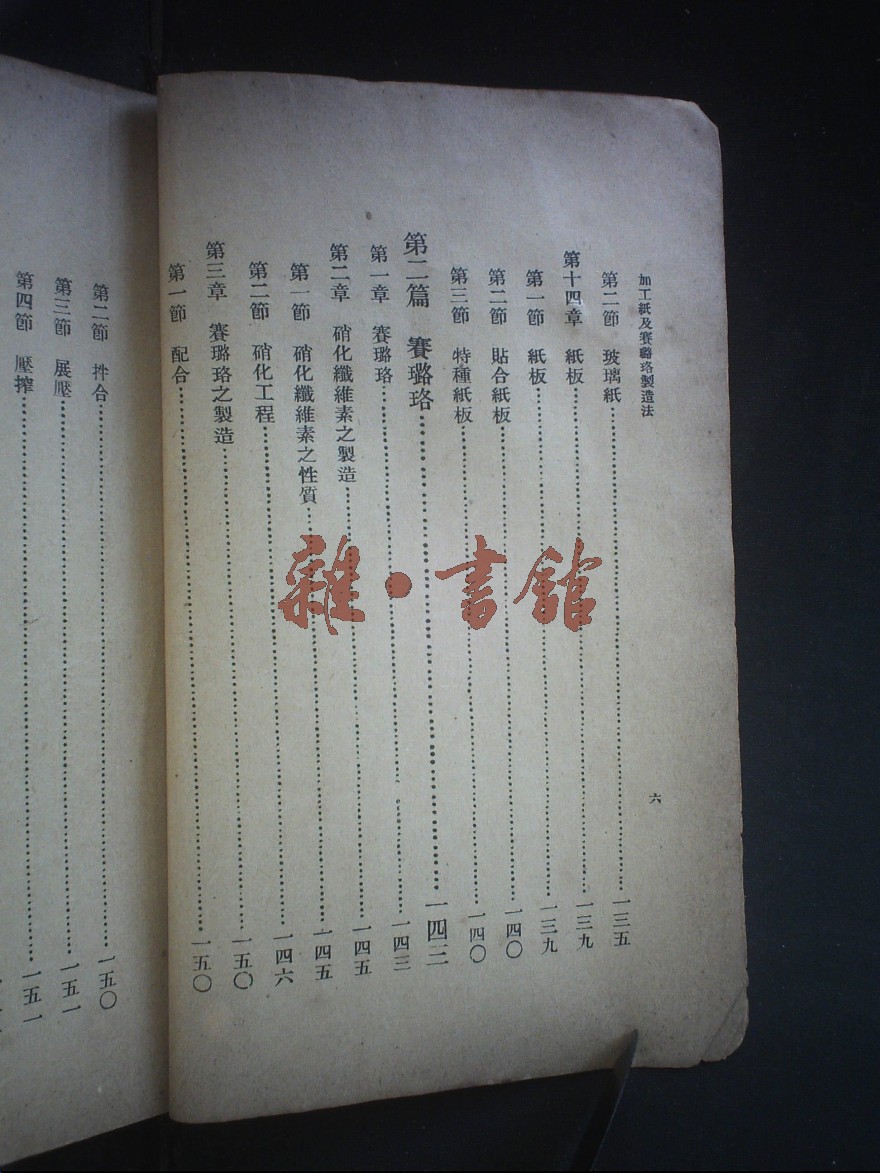 加工紙及賽璐珞製造法
六
第二節　玻璃紙……一三五
第十四章　紙板……一三九
第一節　紙板……一三九
第二節　貼合紙板……一四〇
第三節　特種紙板……一四〇
第二篇　賽璐珞……一四三
第一章　賽璐珞……一四三
第二章　硝化纖維素之製造……一四五
第一節　硝化纖維素之性質……一四五
第二節　硝化工程……一四六
第三章　賽璐珞之製造……一五〇
第一節　配合……一五〇
第二節　拌合……一五〇
第三節　展壓……一五一
第四節　壓搾……一五一
雜・書館